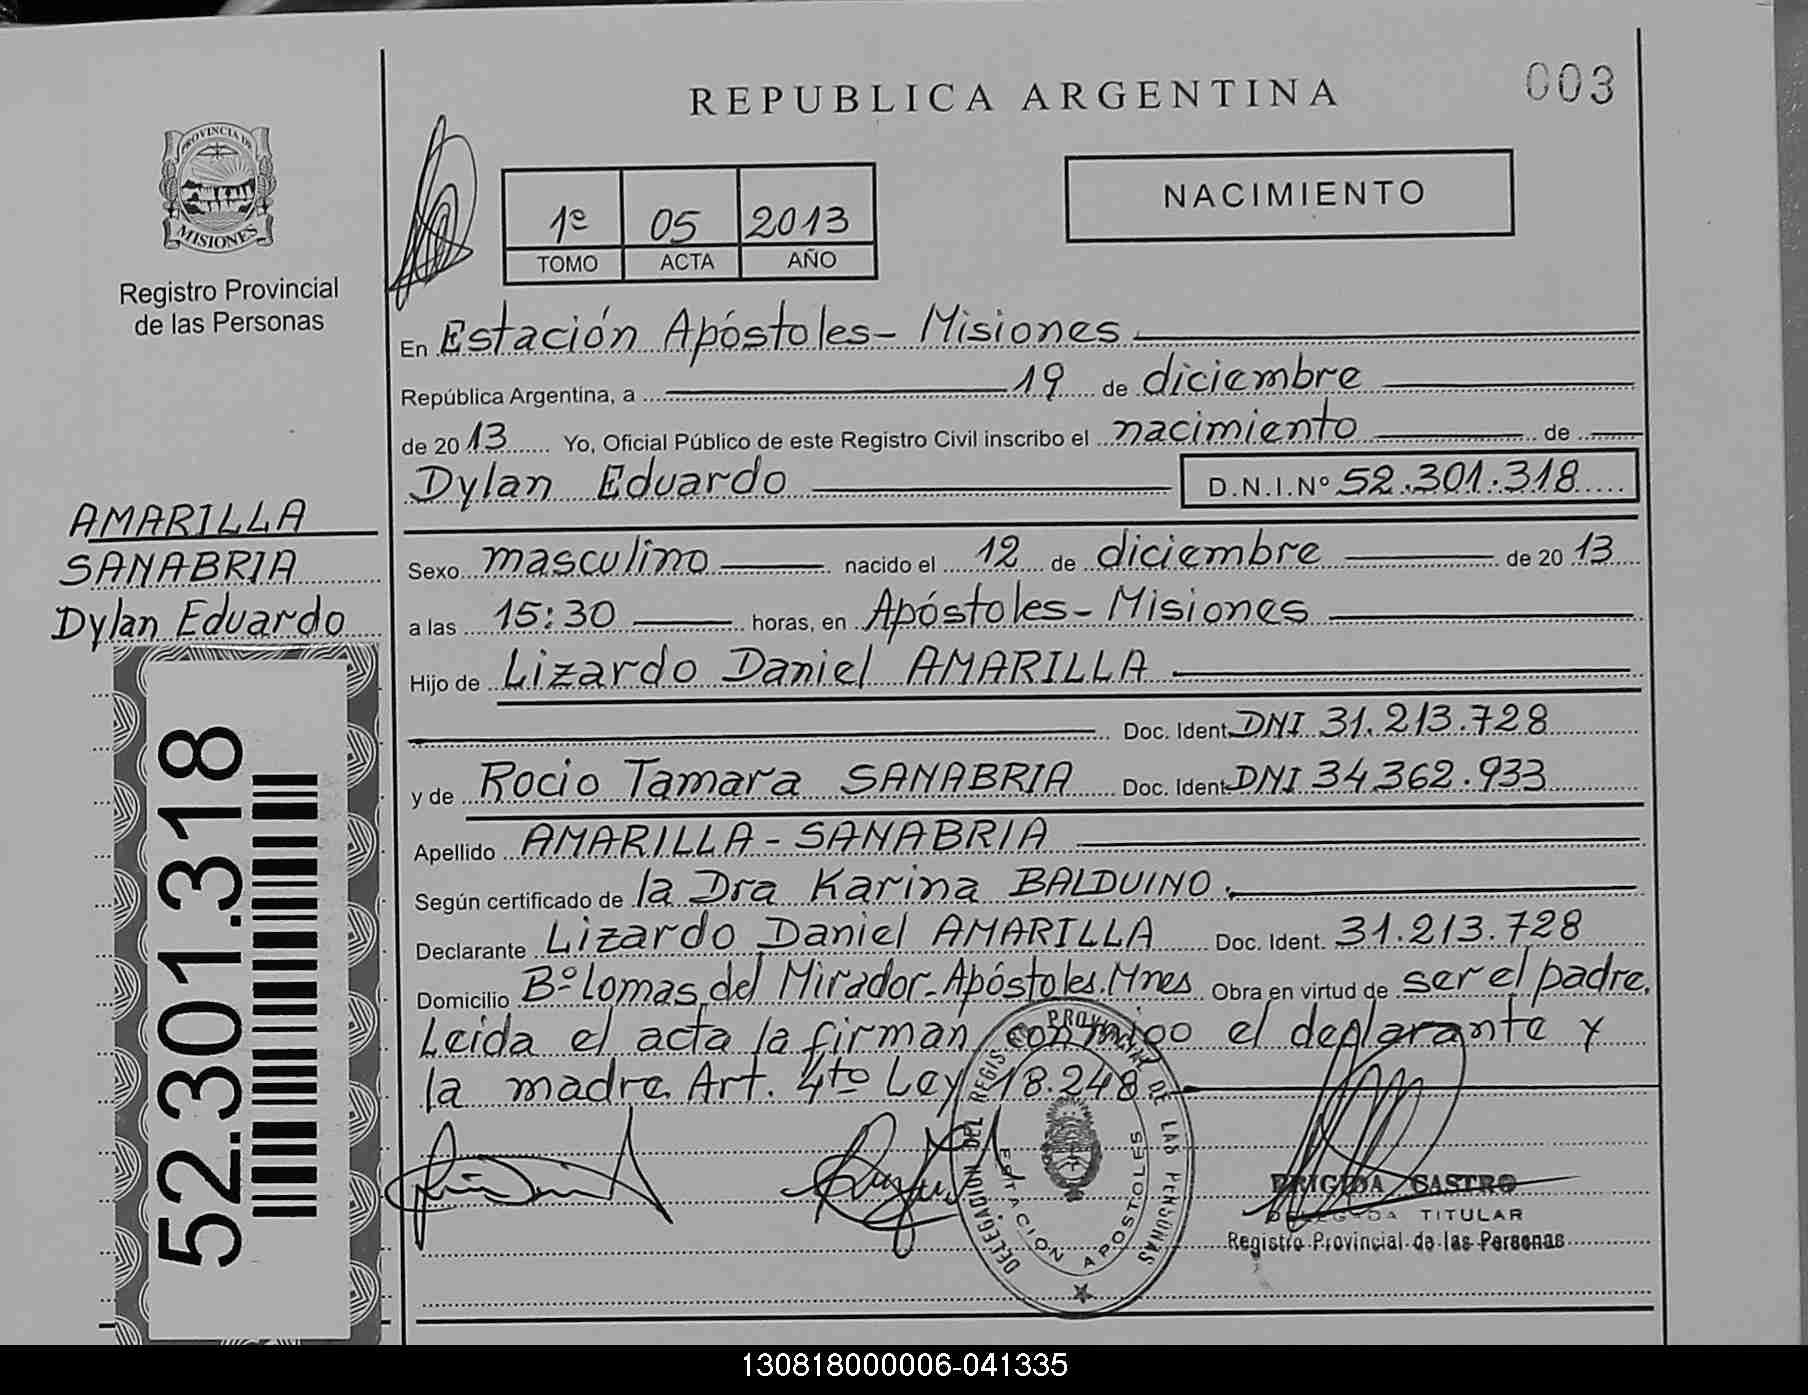 REPUBLICA ARGENTINA
003
PROVINCIA DE
MISIONES
Registro Provincial
de las Personas
1º 05 2013
TOMO ACTA AÑO
NACIMIENTO
En Estación Apóstoles - Misiones
República Argentina, a 19 de diciembre
de 2013 Yo, Oficial Público de este Registro Civil inscribo el nacimiento de
Dylan Eduardo D.N.I.Nº 52.301.318
AMARILLA
SANABRIA
Dylan Eduardo
52.301.318
Sexo masculino nacido el 12 de diciembre de 2013
a las 15:30 horas, en Apóstoles - Misiones
Hijo de Lizardo Daniel AMARILLA
Doc. Ident. DNI 31.213.728
y de Rocio Tamara SANABRIA Doc. Ident. DNI 34.362.933
Apellido AMARILLA - SANABRIA
Según certificado de la Dra Karina BALDUINO.
Declarante Lizardo Daniel AMARILLA Doc. Ident. 31.213.728
Domicilio Bº Lomas del Mirador - Apóstoles. Mnes Obra en virtud de ser el padre.
Leida el acta la firman conmigo el declarante y
la madre. Art. 4to Ley 18.248.
DELEGACION DEL REGISTRO PROVINCIAL DE LAS PERSONAS
ESTACION APOSTOLES
BRIGIDA CASTRO
DELEGADA TITULAR
Registro Provincial de las Personas
130818000006-041335